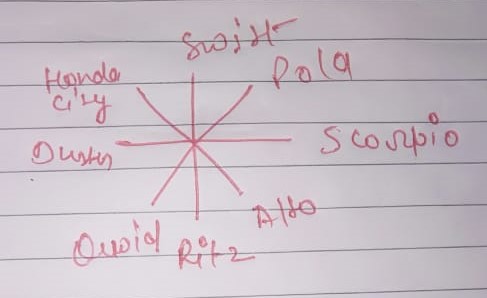 Swift
Honda
City
Pola
Duster
Scorpio
Alto
Quid
Ritz